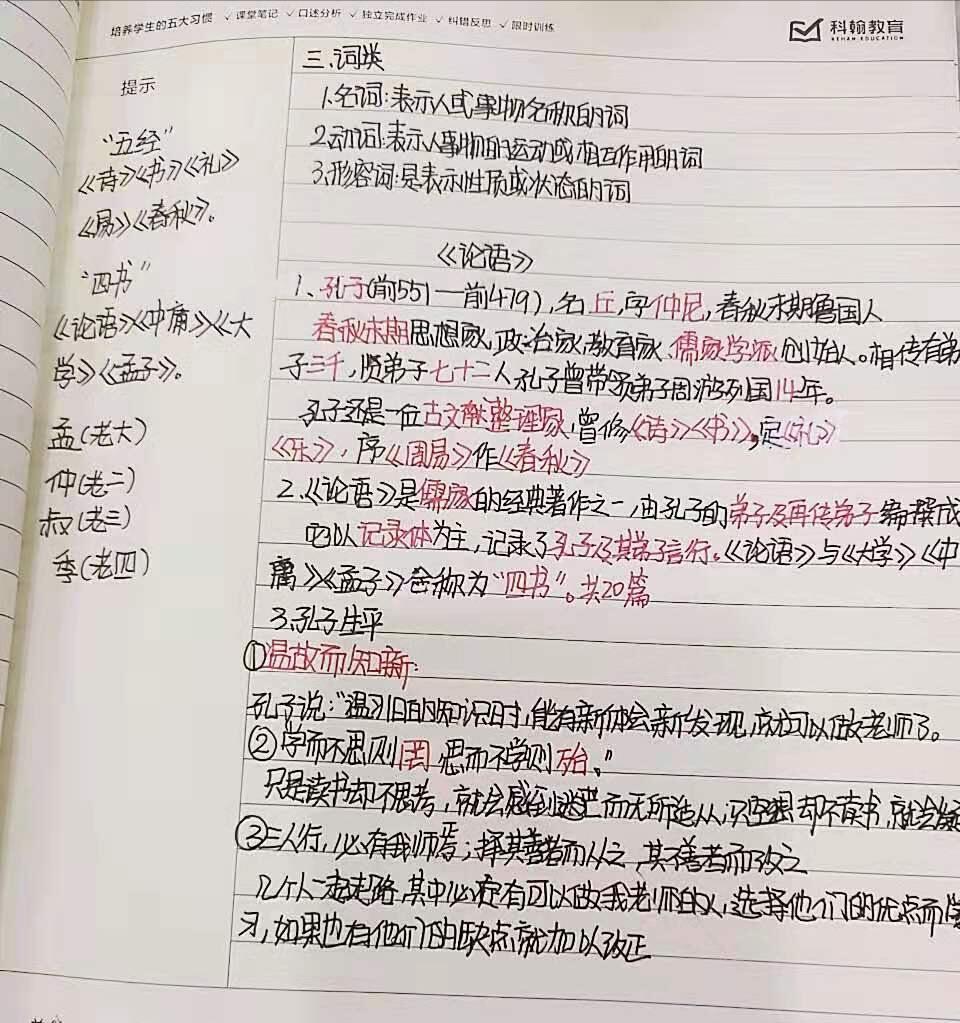 培养学生的五大习惯 ✓ 课堂笔记 ✓ 口述分析 ✓ 独立完成作业 ✓ 纠错反思 ✓ 限时训练
科翰教育
KEHAN EDUCATION
提示
"五经"
《诗》《书》《礼》
《易》《春秋》。
"四书"
《论语》《中庸》《大
学》《孟子》。
孟(老大)
仲(老二)
叔(老三)
季(老四)
三.词类
1.名词:表示人或事物名称的词
2.动词:表示人事物的运动或相互作用的词
3.形容词:是表示性质或状态的词
《论语》
1、孔子(前551—前479),名丘,字仲尼,春秋末期鲁国人
春秋末期思想家,政治家,教育家、儒家学派创始人。相传有弟
子三千,贤弟子七十二人,孔子曾带领弟子周游列国14年。
孔子还是一位古文献整理家,曾修《诗》《书》,定《礼》
《乐》,序《周易》作《春秋》
2.《论语》是儒家的经典著作之一,由孔子的弟子及再传弟子编撰成
它以记录体为主,记录了孔子及其弟子言行。《论语》与《大学》《中
《孟子》合称为"四书"。共20篇
3.孔子生平
①温故而知新:
孔子说:"温习旧的知识时,能有新体会新发现,就可以做老师了。
②学而不思则罔,思而不学则殆。"
只是读书却不思考,就会感到迷茫而无所适从,只空想却不读书,就会
③三人行,必有我师焉;择其善者而从之,其不善者而改之
几个人一起走路,其中必定有可以做我老师的人,选择他们的优点而学
习,如果也有他们的缺点就加以改正